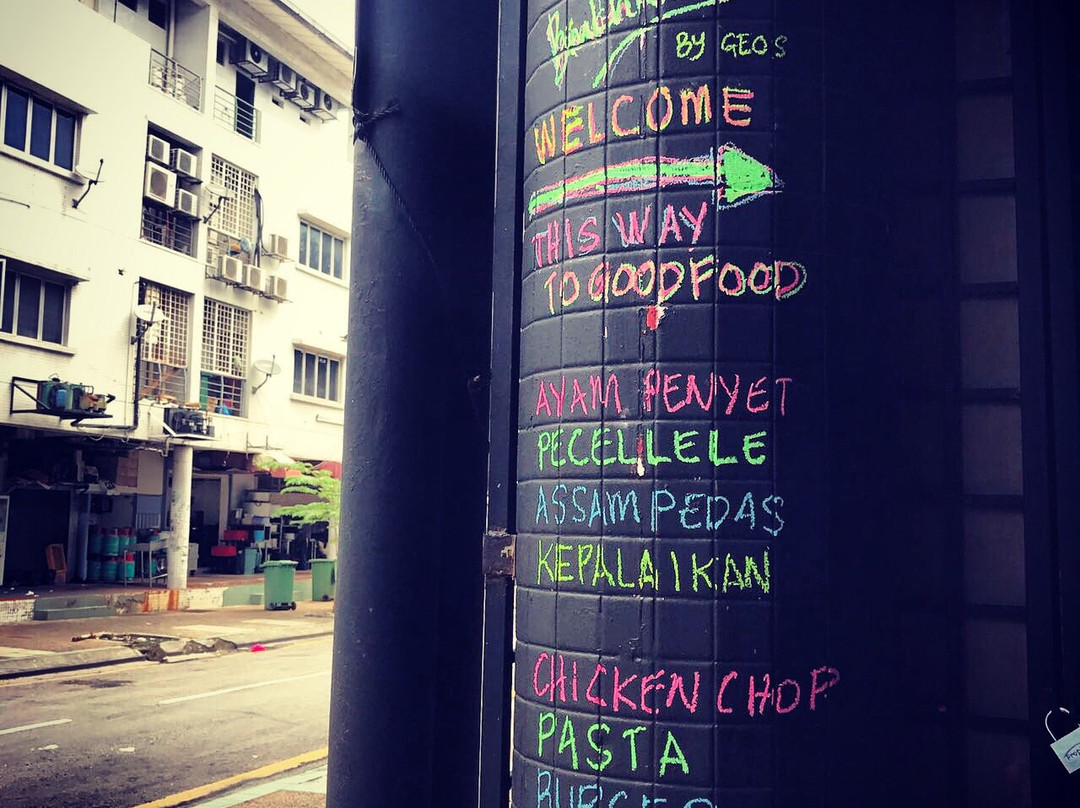 BY GEOS
WELCOME
THIS WAY
TO GOOD FOOD
AYAM PENYET
PECEL LELE
ASSAM PEDAS
KEPALA IKAN
CHICKEN CHOP
PASTA
BURGER